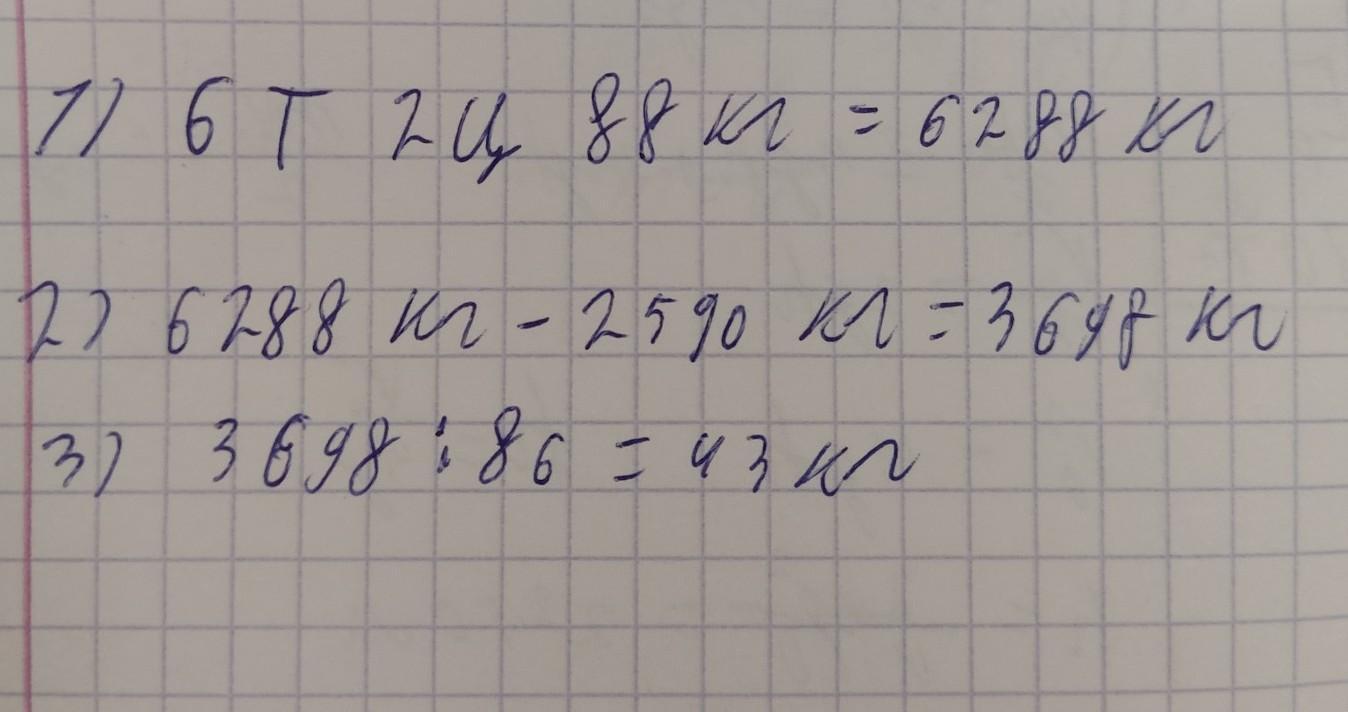 1) 6 т 2 ц 88 кг = 6288 кг
2) 6288 кг - 2590 кг = 3698 кг
3) 3698 : 86 = 43 кг